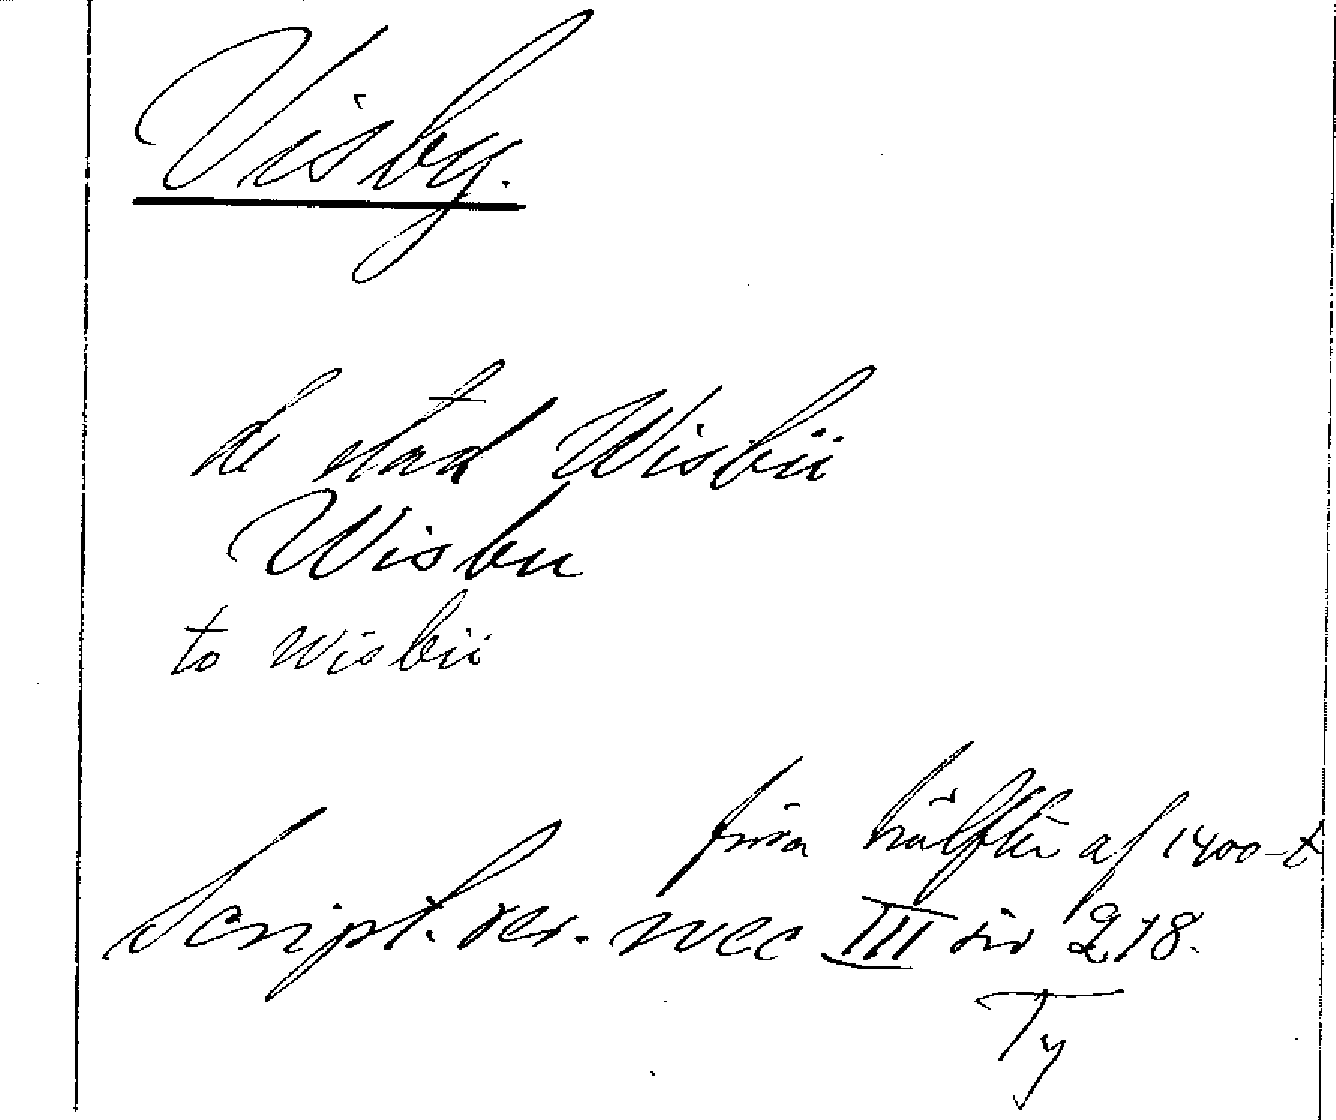 Visby.
de stad Wisbü
Wisbu
to Wisbü
förra hälften af 1400-t
Script. rer. svec III sid 218.
Ty